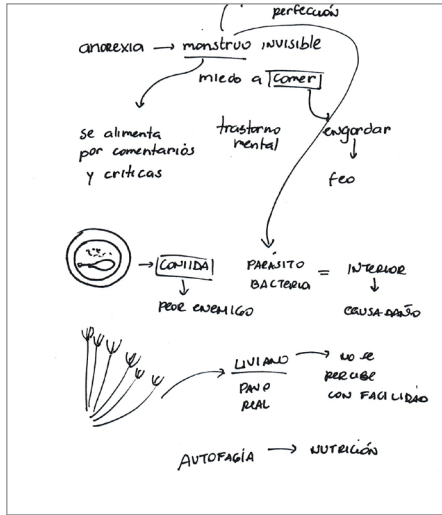 perfección
anorexia → monstruo invisible
miedo a comer
se alimenta
por comentarios
y críticas
trastorno
mental
engordar
feo
COMIDA
PEOR ENEMIGO
PARÁSITO
BACTERIA
=
INTERIOR
CAUSA DAÑO
LIVIANO
PAVO
REAL
NO SE
PERCIBE
CON FACILIDAD
AUTOFAGÍA → NUTRICIÓN